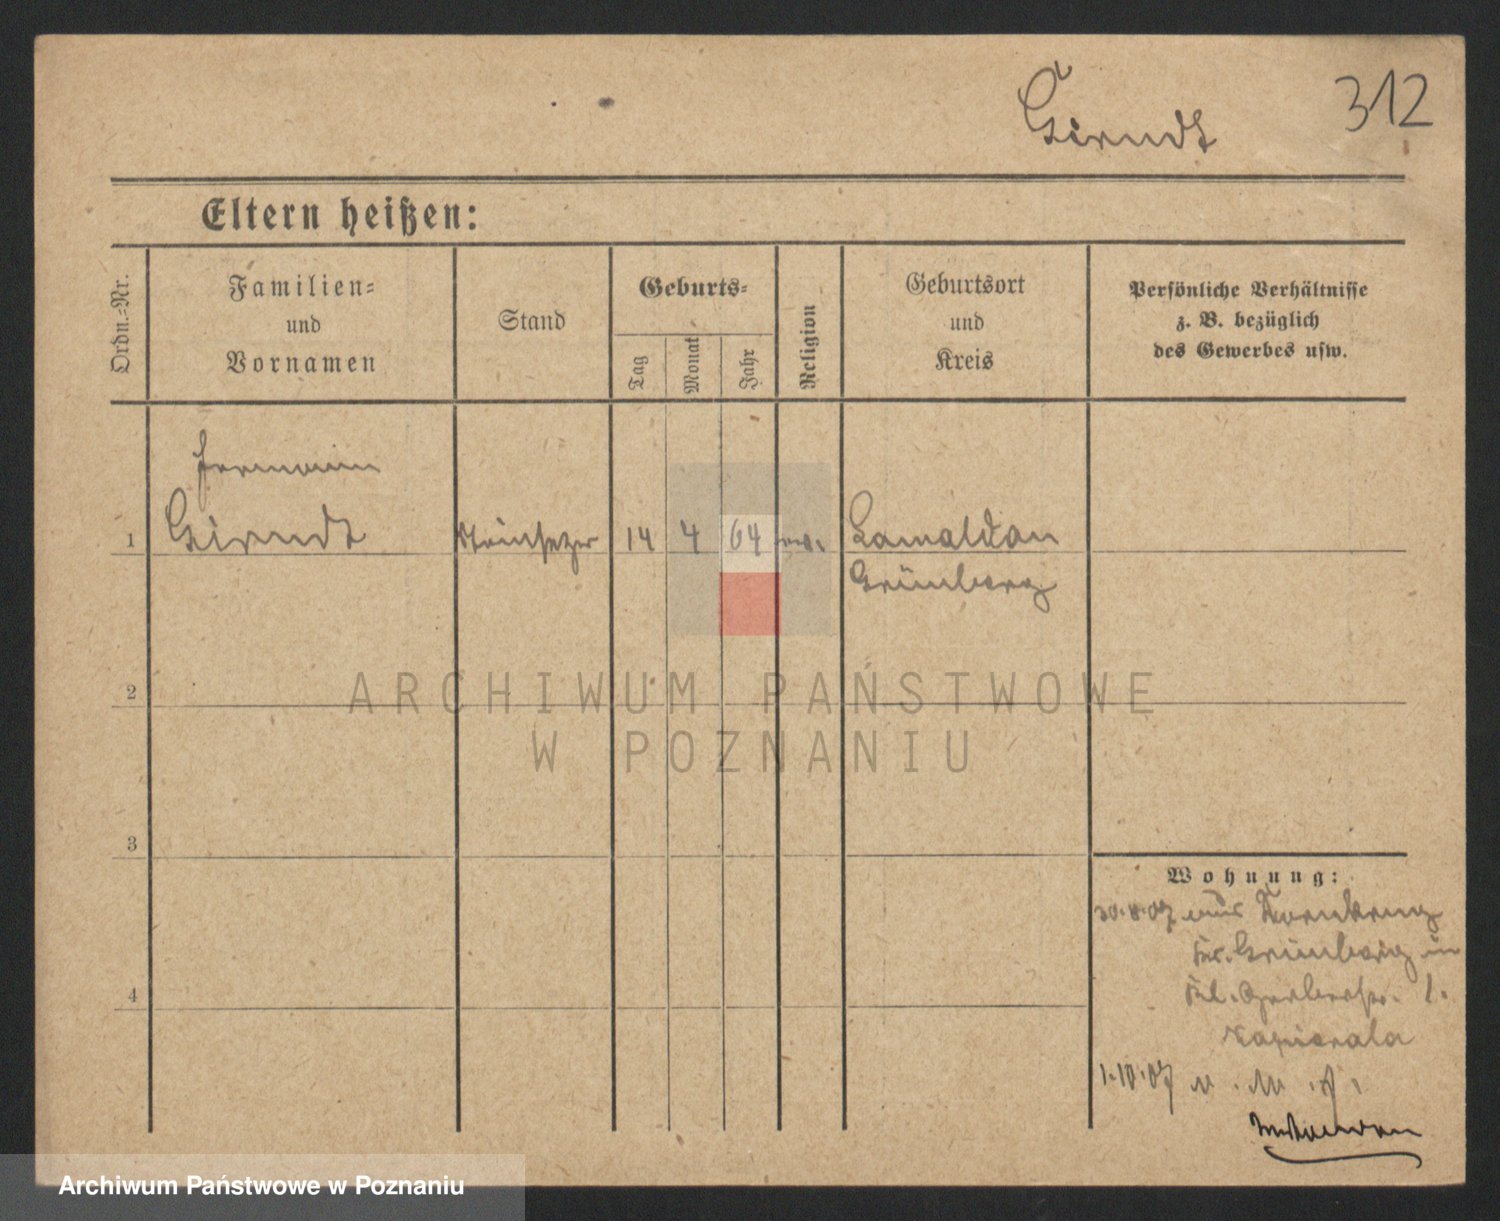 Girndt 312
Eltern heißen:
Ordn.-Nr.
Familien-
und
Vornamen
Stand
Geburts-
Tag
Monat
Jahr
Religion
Geburtsort
und
Kreis
Persönliche Verhältnisse
z. B. bezüglich
des Gewerbes usw.
Hermann
1 Girndt Steinsetzer 14 4 64 ev.
Grünberg
2
ARCHIWUM PAŃSTWOWE
W POZNANIU
3
Wohnung:
30.8.07 aus
Kr. Grünberg in
4
Kl. Gerberstr. 1.
1.10.07
Archiwum Państwowe w Poznaniu